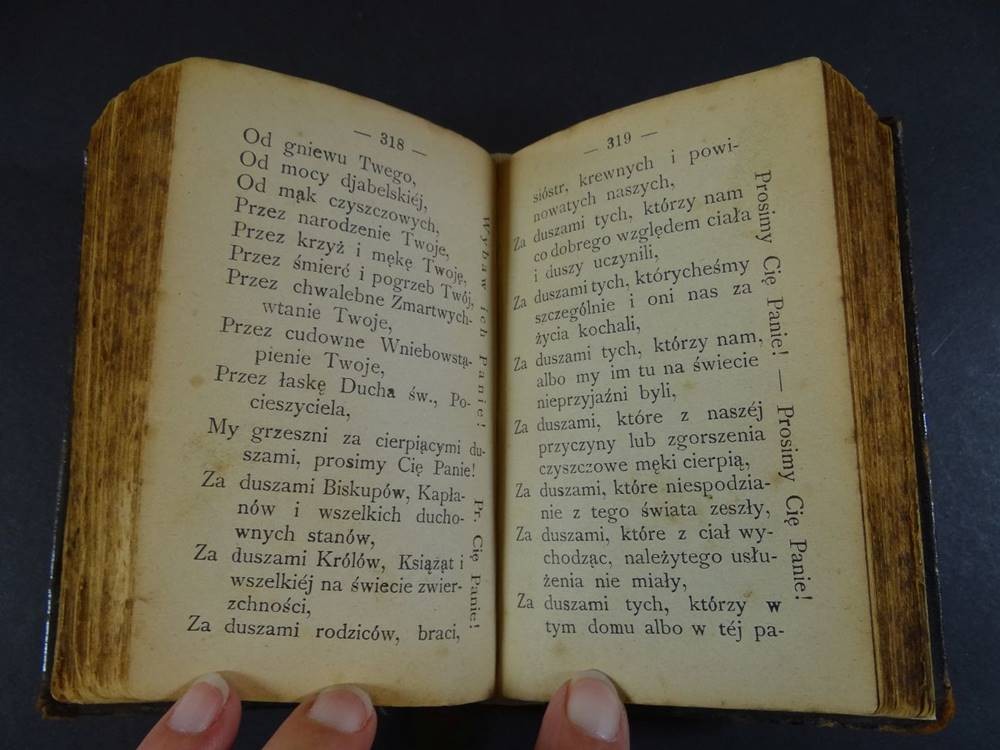 — 318 —
Od gniewu Twego,
Od mocy djabelskiéj,
Od mąk czyszczowych,
Przez narodzenie Twoje,
Przez krzyż i mękę Twoję,
Przez śmierć i pogrzeb Twój,
Przez chwalebne Zmartwych-
wtanie Twoje,
Przez cudowne Wniebowstą-
pienie Twoje,
Przez łaskę Ducha św., Po-
cieszyciela,
Wybaw ich Panie!
My grzeszni za cierpiącymi du-
szami, prosimy Cię Panie!
Za duszami Biskupów, Kapła-
nów i wszelkich ducho-
wnych stanów,
Za duszami Królów, Książąt i
wszelkiéj na świecie zwier-
zchności,
Za duszami rodziców, braci,
Pr. Cię Panie!
— 319 —
sióstr, krewnych i powi-
nowatych naszych,
Za duszami tych, którzy nam
co dobrego względem ciała
i duszy uczynili,
Za duszami tych, którycheśmy
szczególnie i oni nas za
życia kochali,
Za duszami tych, którzy nam,
albo my im tu na świecie
nieprzyjaźni byli,
Za duszami, które z naszéj
przyczyny lub zgorszenia
czyszczowe męki cierpią,
Za duszami, które niespodzia-
nie z tego świata zeszły,
Za duszami, które z ciał wy-
chodząc, należytego usłu-
żenia nie miały,
Za duszami tych, którzy w
tym domu albo w téj pa-
Prosimy Cię Panie! — Prosimy Cię Panie!